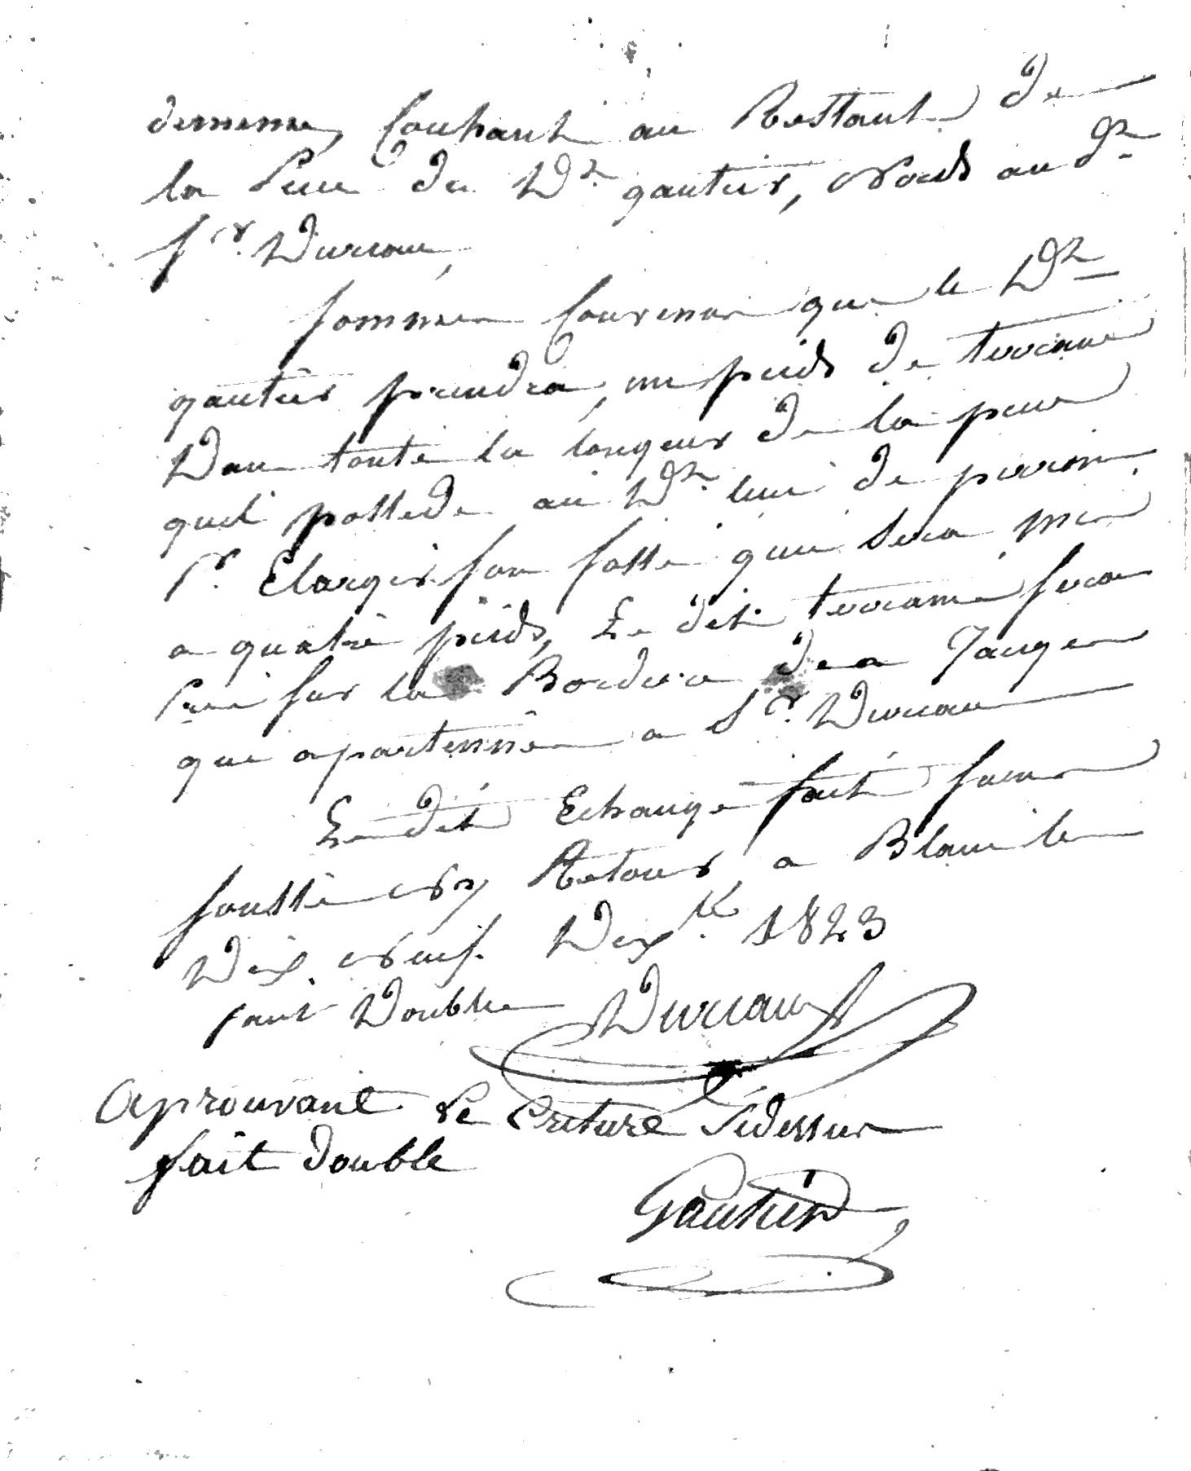 dememe, Couhant au Restant de
la piece du Dr. gautier, Nord au dr.
Sr. Dureau,
sommes Convenu que le Dr
gautier prendra, un pieds de terrain
Dans toute la longueur de la piece
quil possede au Dr. lieu de
pr. Elargir son fosse qui sera mi
a quatre pieds, Le dit terrain sera
pri sur la Bordure de
que apartenne a Sr. Dureau
Le dit Echange fait sans
soulte ny Retour, a Blain le
Dix neuf. Dex.bre 1823
fait Double Dureau
Aprouvant Le Criture Sidessus
fait double
Gautier